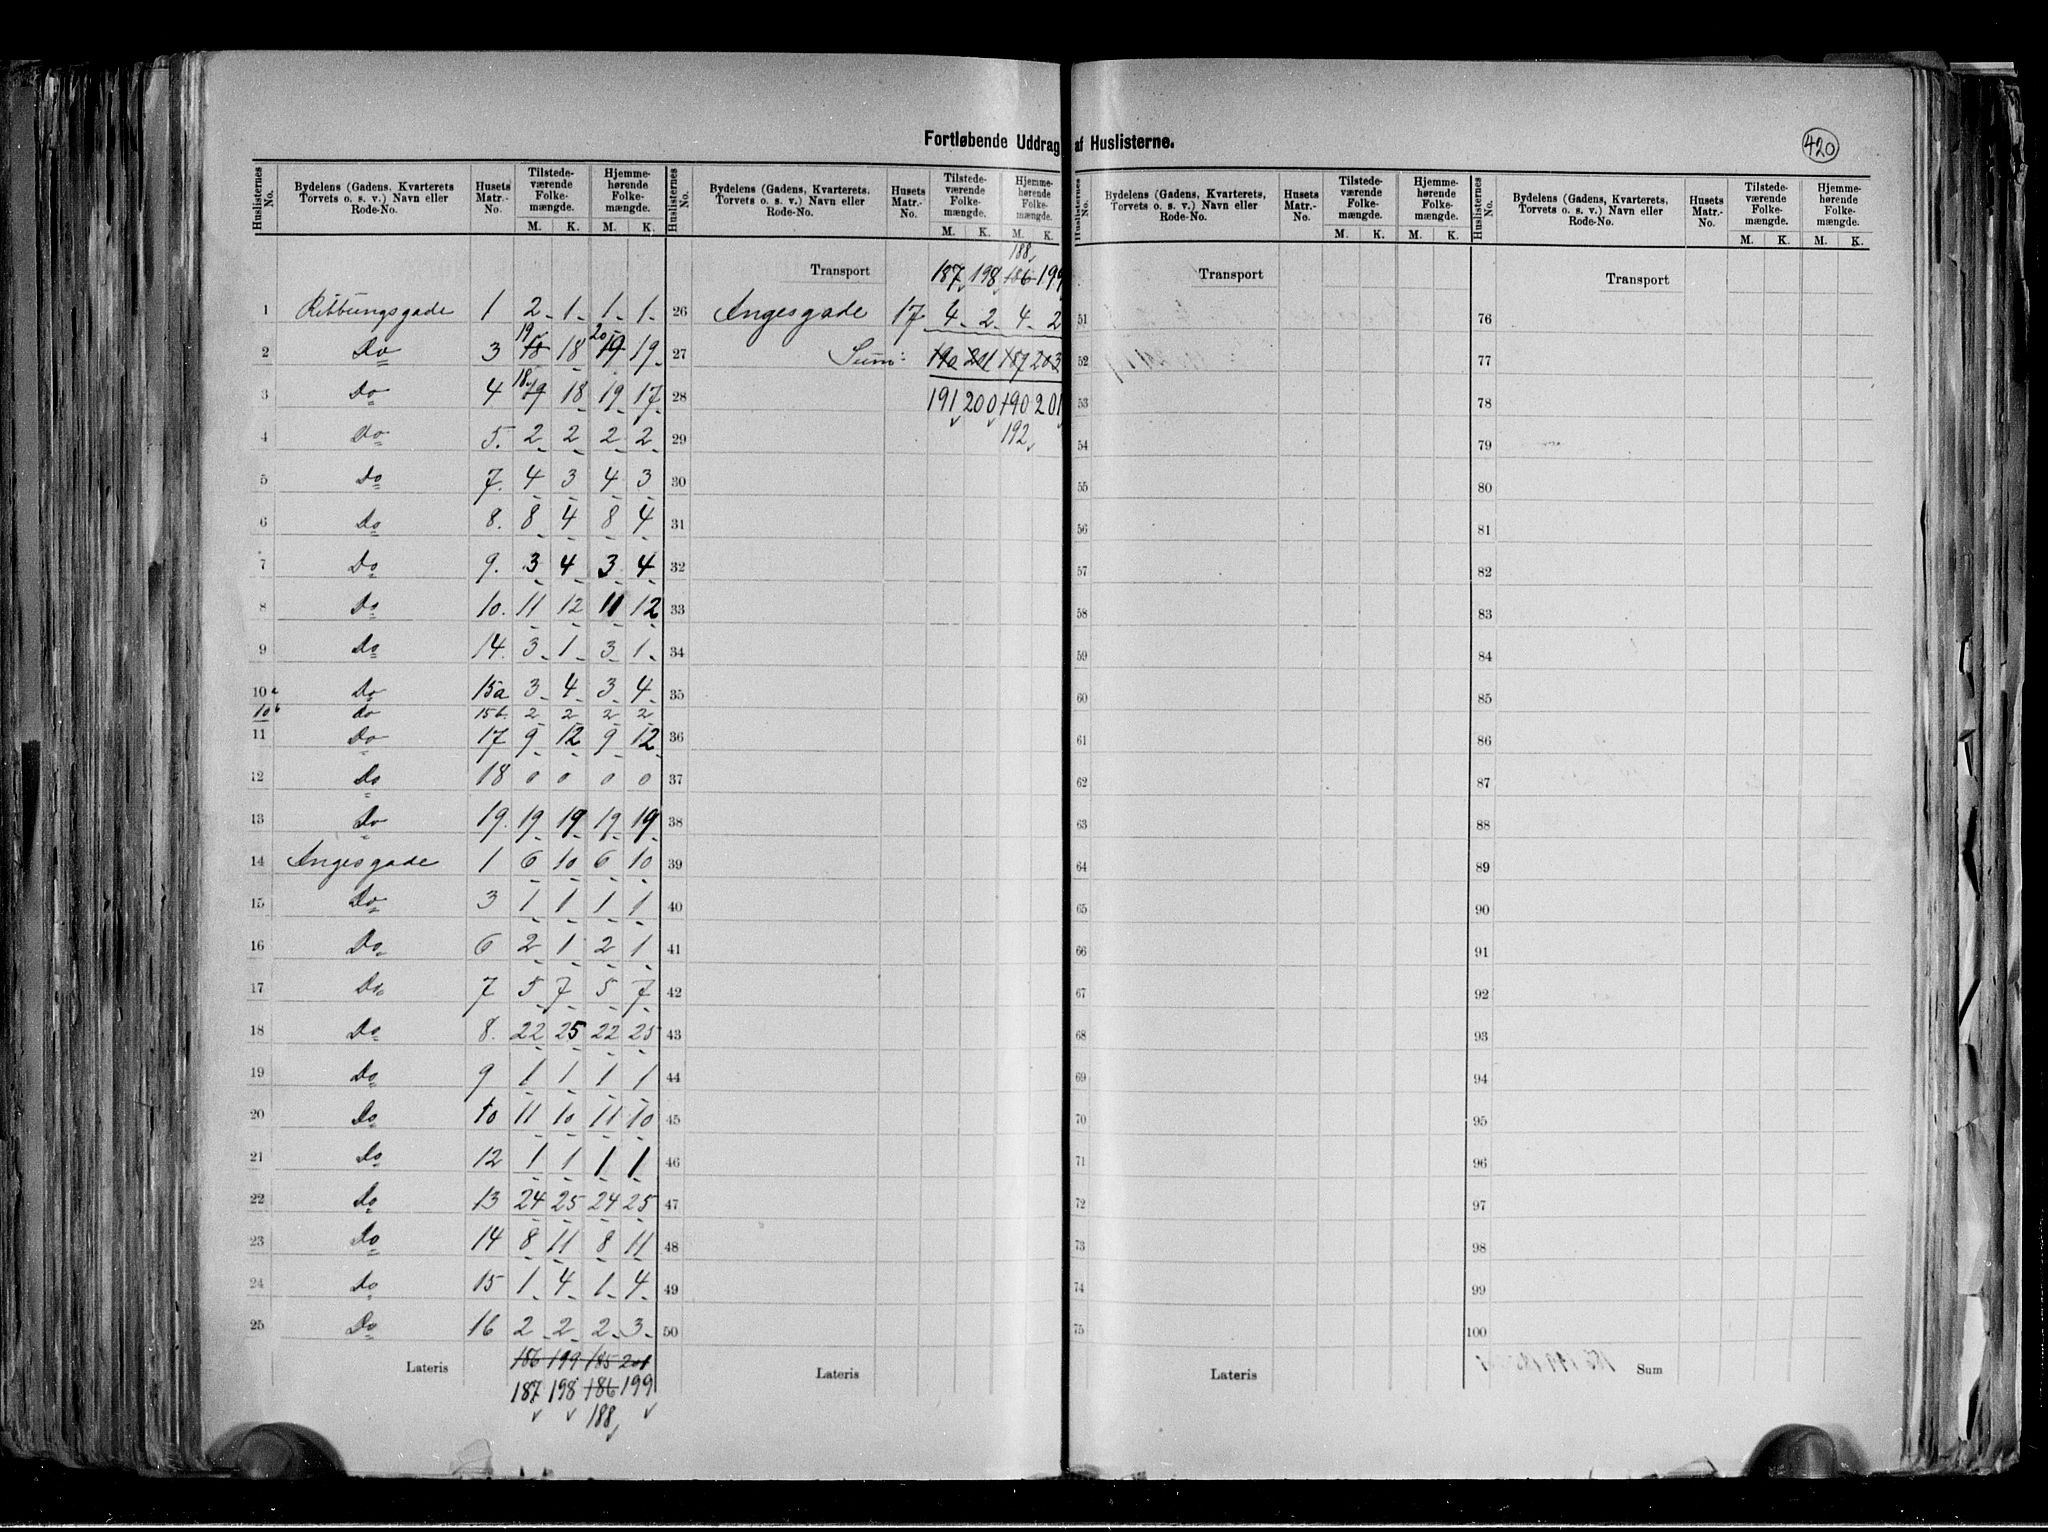 Fortløbende Uddrag af Huslisterne.
420
Huslisternes No. Bydelens (Gadens, Kvarterets Torvets o. s. v.) Navn eller Rode-No. Husets Matr.-No. Tilstedeværende Folkemængde. M. K. Hjemmehørende Folkemængde. M. K.
1 Ribbungsgade 1 2 1 1 1
2 Do 3 18 19 18 19 20 19
3 Do 4 19 18 18 19 17
4 Do 5. 2 2 2 2
5 Do 7. 4 3 4 3
6 Do 8. 8 4 8 4
7 Do 9. 3 4 3 4
8 Do 10. 11 12 11 12
9 Do 14. 3 1 3 1
10a Do 15a 3 4 3 4
10b do 15b. 2 2 2 2
11 Do 17 9 12 9 12
12 Do 18 0 0 0 0
13 Do 19. 19 19 19 19
14 Angesgade 1 6 10 6 10
15 Do 3 1 1 1 1
16 Do 6 2 1 2 1
17 Do 7 5 7 5 7
18 Do 8. 22 25 22 25
19 Do 9 1 1 1 1
20 Do 10 11 10 11 10
21 Do 12 1 1 1 1
22 Do 13 24 25 24 25
23 Do 14 8 11 8 11
24 Do 15 1 4 1 4
25 Do 16 2 2 2 3
Lateris 186 199 185 201
187 198 186 199
188
Huslisternes No. Bydelens (Gadens, Kvarterets, Torvets o. s. v.) Navn eller Rode-No. Husets Matr.-No. Tilstedeværende Folkemængde. M. K. Hjemmehørende Folkemængde. M. K.
188
Transport 187 198 186 199
26 Angesgade 17 4 2 4 2
27 Sum: 190 201 187 203
28 191 200 190 201
29 192
30
31
32
33
34
35
36
37
38
39
40
41
42
43
44
45
46
47
48
49
50
Lateris
Huslisternes No. Bydelens (Gadens, Kvarterets, Torvets o. s. v.) Navn eller Rode-No. Husets Matr.-No. Tilstedeværende Folkemængde. M. K. Hjemmehørende Folkemængde. M. K.
Transport
51
52
53
54
55
56
57
58
59
60
61
62
63
64
65
66
67
68
69
70
71
72
73
74
75
Lateris
Huslisternes No. Bydelens (Gadens, Kvarterets, Torvets o. s. v.) Navn eller Rode-No. Husets Matr.-No. Tilstedeværende Folkemængde. M. K. Hjemmehørende Folkemængde. M. K.
Transport
76
77
78
79
80
81
82
83
84
85
86
87
88
89
90
91
92
93
94
95
96
97
98
99
100
Sum